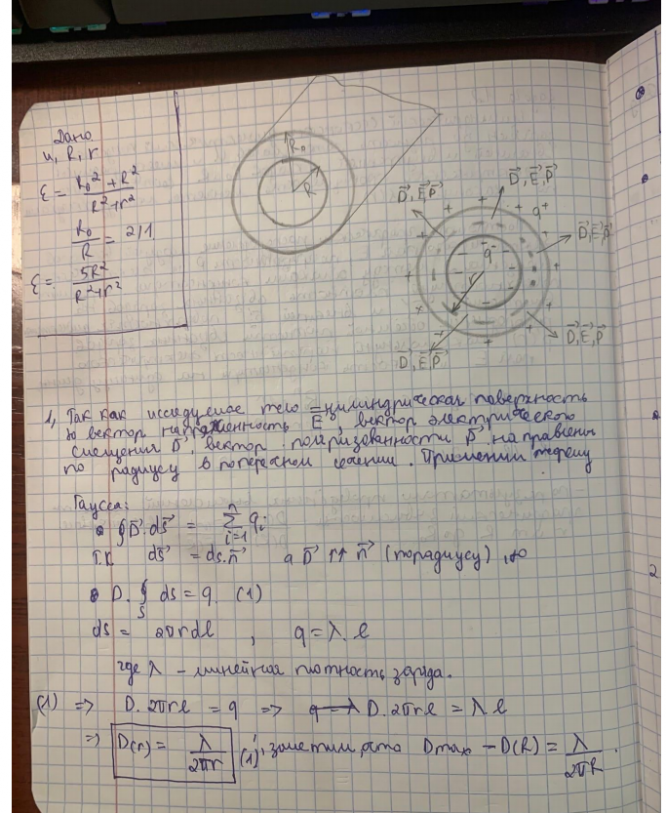 Дано
u, R, r
ε = R₀² + R² / R² + r²
R₀ / R = 2/1
ε = 5R² / R² + r²
R₀
R
D⃗, E⃗, P⃗
D⃗, E⃗, P⃗
q⁺
D⃗, E⃗, P⃗
q⁻
r
D⃗, E⃗, P⃗
D⃗, E⃗, P⃗
1, Так как исследуемое тело – цилиндрическая поверхность
то вектор напряженность E⃗, вектор электрического
смещения D⃗, вектор поляризованности P⃗ направлены
по радиусу в поперечном сечении. Применим теорему
Гаусса:
∮ D⃗·ds⃗ = Σ qᵢ (i=1, n)
т.к ds⃗ = ds·n⃗ а D⃗ ↑↑ n⃗ (по радиусу), то
D·∮ ds = q. (1)
S
ds = 2πrdl , q = λ·l
где λ – линейная плотность заряда.
(1) => D·2πrl = q => D·2πrl = λl
=> D(r) = λ / 2πr (1)', заметим, что Dmax – D(R) = λ / 2πR.
2